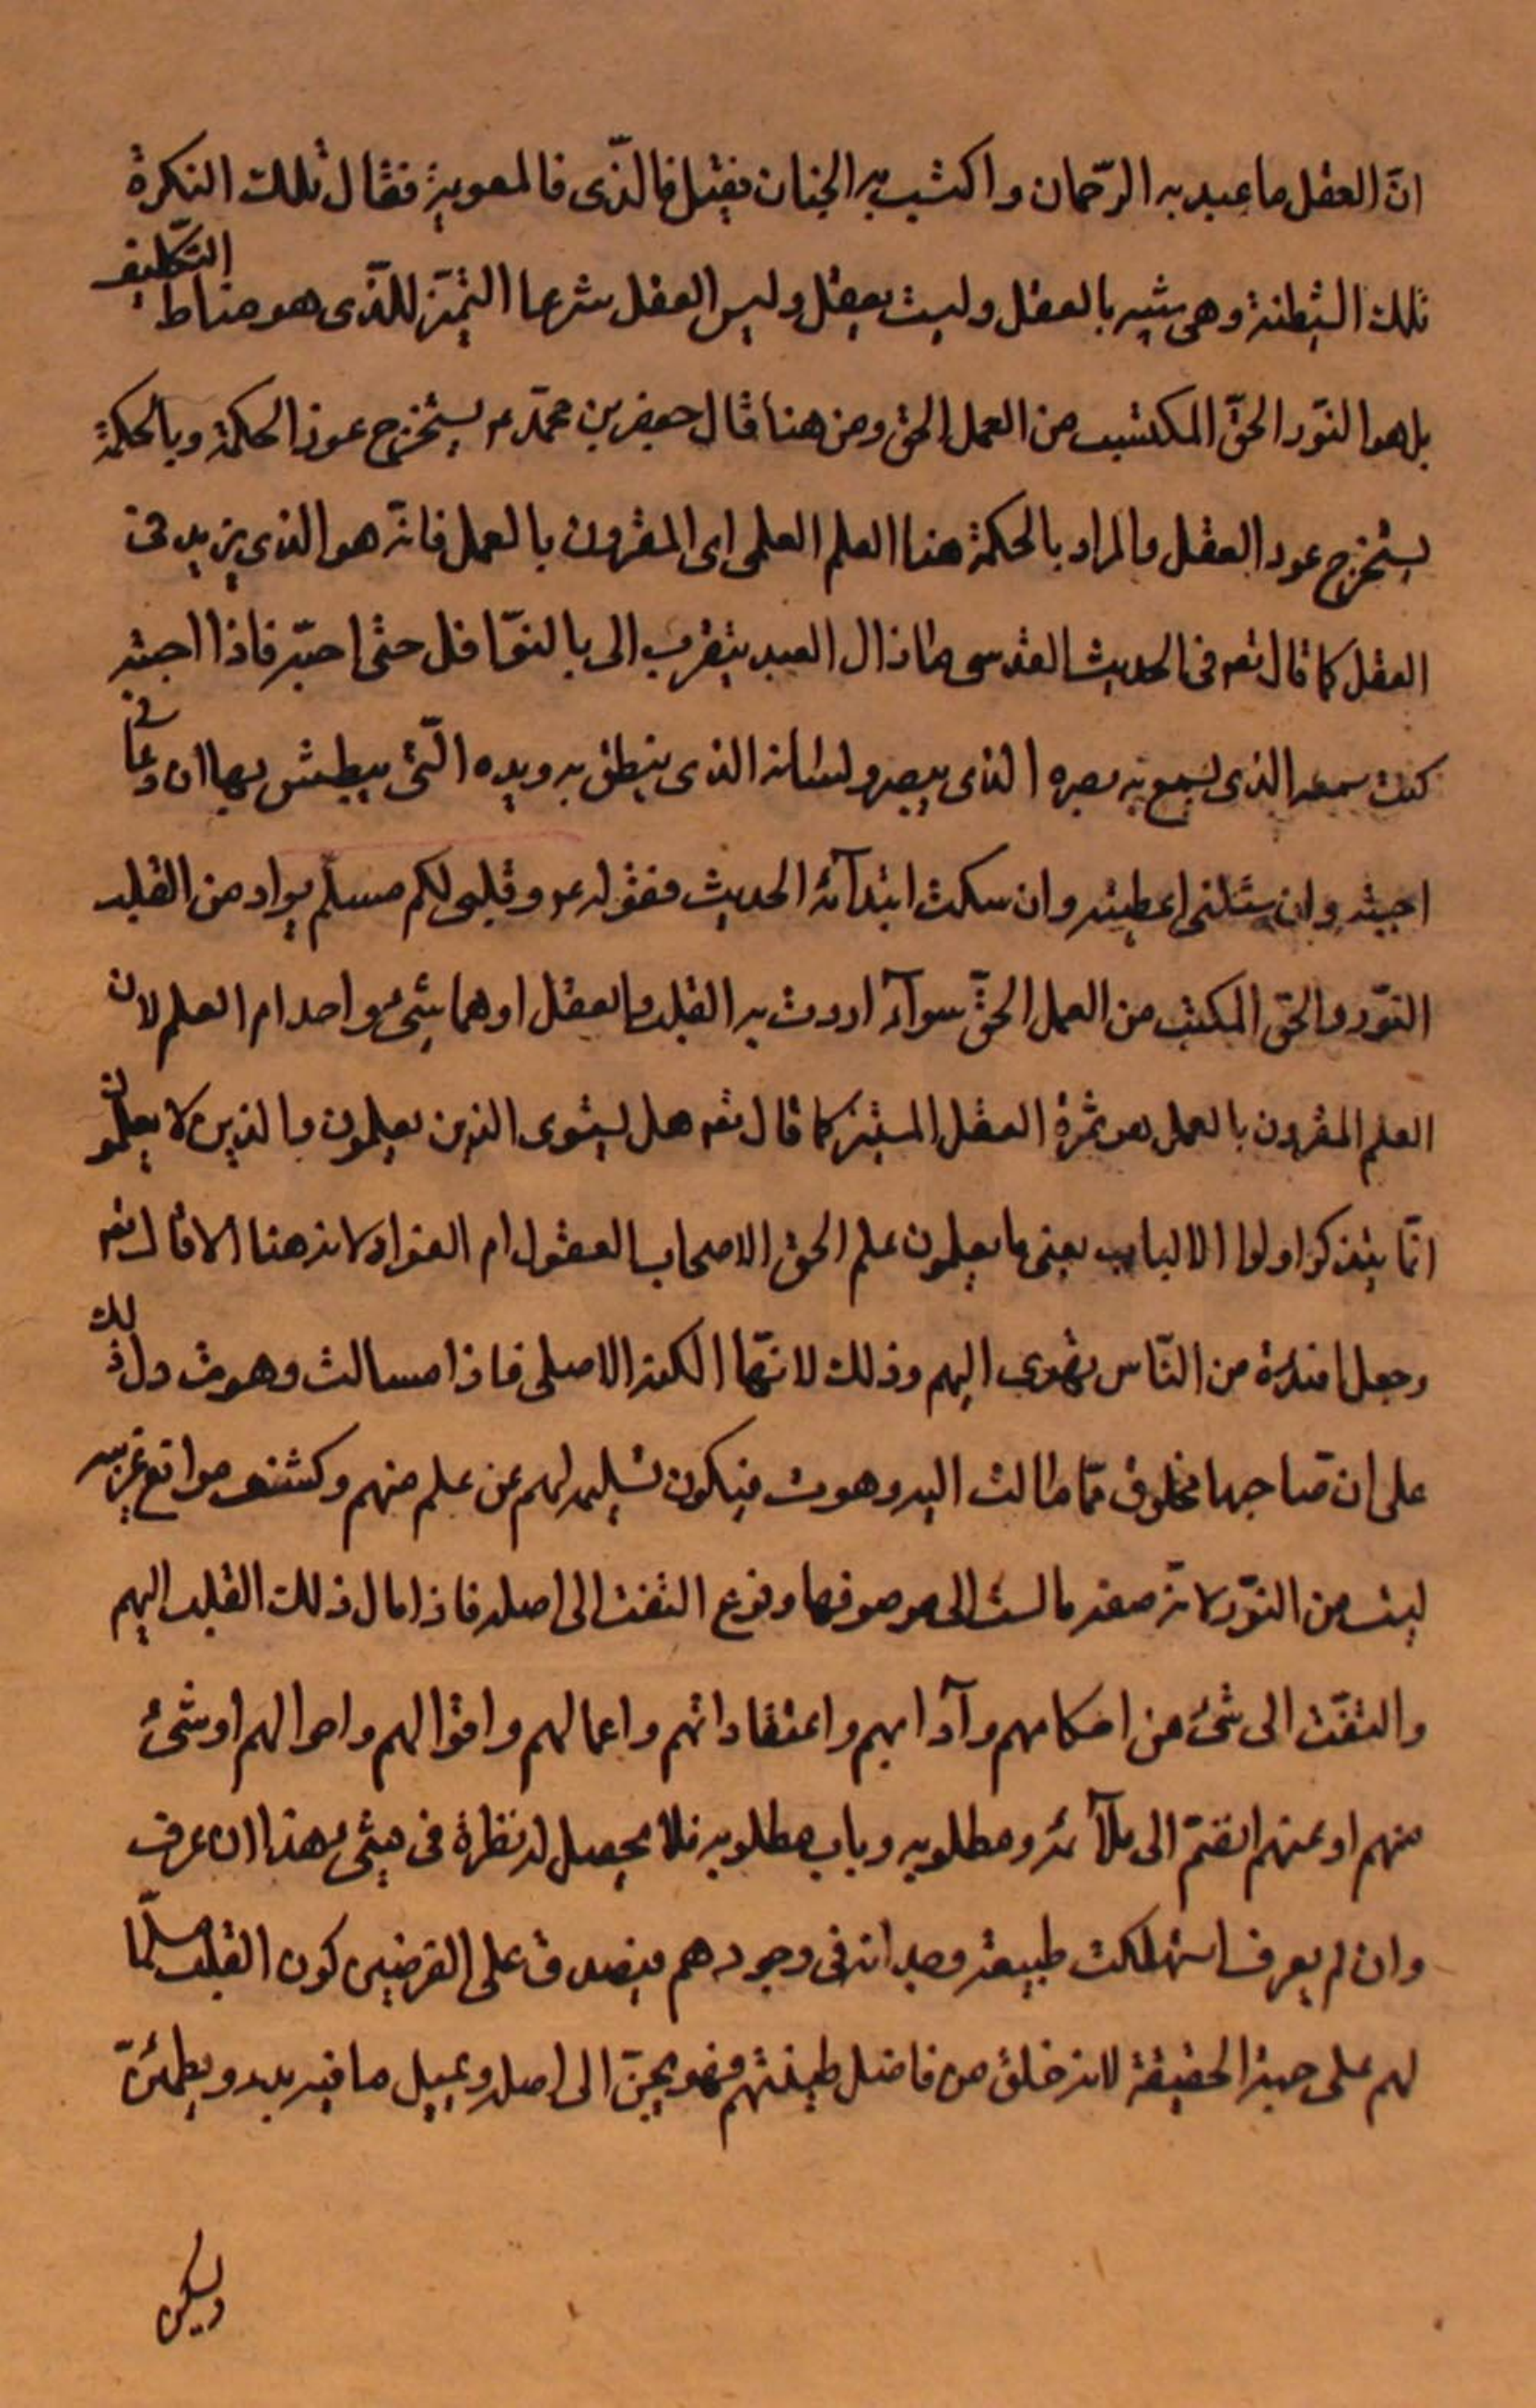 انّ العقل ما عبد به الرّحمان و اكتسب به الجنان فقيل فالذّى فالمعوية فقال تلك النكرة
تلك الشيطنة وهى شبيه بالعقل وليست بعقل وليس العقل شرعا التميّز للذّى هو مناط التكليف
بل هو النوّر الحقّ المكتسب من العمل الحق ومن هنا قال جعفر بن محمّد ع يستخرج عوز الحكمة وبالحكمة
يستخرج عود العقل والمراد بالحكمة هنا العلم العلمى اى المقرون بالعمل فانّه هو الذى يزيد فى
العقل كما قال تعه فى الحديث القدسى ما زال العبد يتقرب الى بالنوّافل حتى احبّه فاذا احببته
كنت سمعه الذى يسمع به بصره الذى يبصر ولسانه الذى ينطق به ويده الّتى يبطش بها ان دعانى
اجبته وان سئلنى اعطيته وان سكت ابتدأته الحديث فقوله ع وقلبى لكم مسلّم يراد من القلب
النوّر والحق المكتسب من العمل الحقّ سوآء اردت به القلب والعقل او هما شىء واحد ام العلم لان
العلم المقرون بالعمل هو ثمرة العقل المستنير كما قال تعه هل يستوى الذين يعلمون والذين لا يعلمون
انّما يتذكر اولوا الالباب يعنى ما يعلمون علم الحق الا صحاب العقول ام الفواد لانه هنا الا قال تعه
وجعل افئدة من النّاس تهوى اليهم وذلك لانّها الكنه الاصلى فاذا مسالت وهوت دل ذلك
على ان صاحبها مخلوق ممّا مالت اليه وهوت فيكون تسليمه لهم عن علم منهم وكشف مواقع غريبه
ليست من النوّر لانّه صفته مالست الى موصوفها وفرع التفت الى اصله فاذا مال ذلك القلب اليهم
والتفّت الى شئ من احكامهم وآدابهم واعتقاداتهم واعمالهم واقوالهم واحوالهم او شئ
منهم او عنهم انضمّ الى ملآئمه ومطلوبه وباب مطلوبه فلا يحصل له نظرة فى شىء هذا ان عرف
وان لم يعرف استهلكت طبيعته وجدانه فى وجودهم فيصدق على الفرضين كون القلب مسلّما
لهم على جهة الحقيقة لانه خلق من فاضل طينتهم فهو يحنّ الى اصله ويميل ما فيه بدء ويطمئنّ
ويسكن